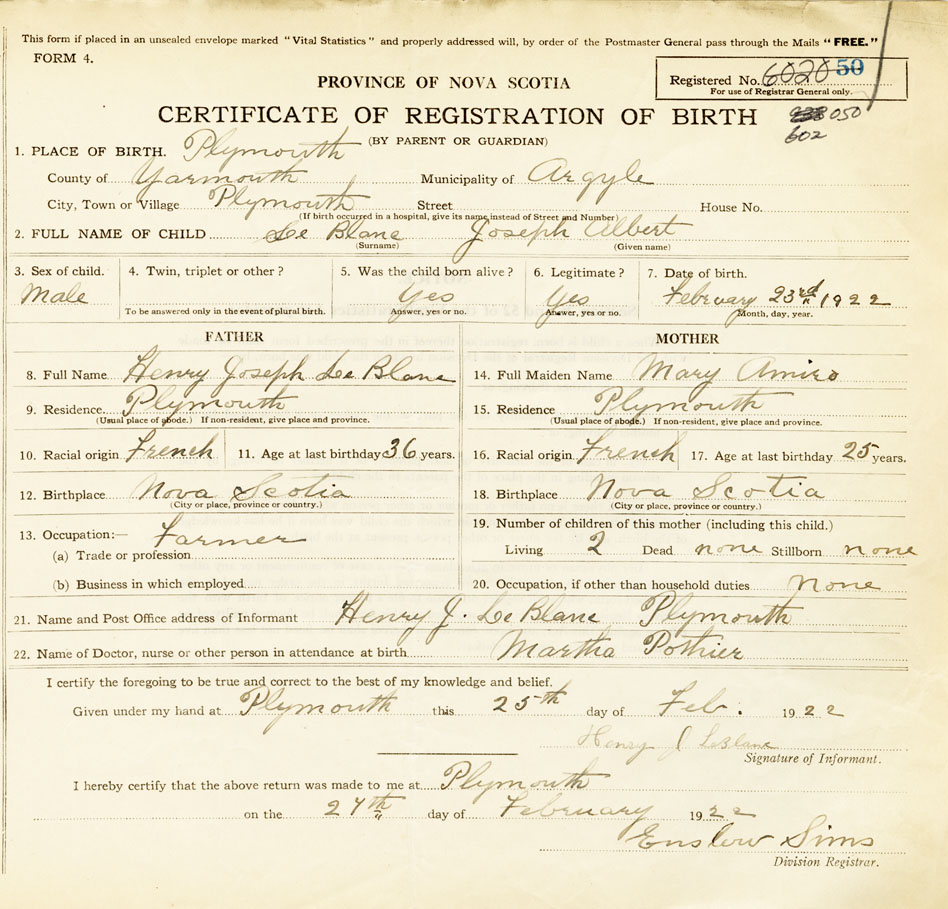 This form if placed in an unsealed envelope marked "Vital Statistics" and properly addressed will, by order of the Postmaster General pass through the Mails "FREE."
FORM 4.
PROVINCE OF NOVA SCOTIA
Registered No. 6020 50
For use of Registrar General only.
CERTIFICATE OF REGISTRATION OF BIRTH
050
602
(BY PARENT OR GUARDIAN)
1. PLACE OF BIRTH. Plymouth
County of Yarmouth Municipality of Argyle
City, Town or Village Plymouth Street House No.
(If birth occurred in a hospital, give its name instead of Street and Number)
2. FULL NAME OF CHILD Le Blanc Joseph Albert
(Surname) (Given name)
3. Sex of child. 4. Twin, triplet or other? 5. Was the child born alive? 6. Legitimate? 7. Date of birth.
Male Yes Yes February 23rd 1922
To be answered only in the event of plural birth. Answer, yes or no. Answer, yes or no. Month, day, year.
FATHER MOTHER
8. Full Name Henry Joseph Le Blanc 14. Full Maiden Name Mary Amiro
9. Residence. Plymouth 15. Residence Plymouth
(Usual place of abode.) If non-resident, give place and province. (Usual place of abode.) If non-resident, give place and province.
10. Racial origin French 11. Age at last birthday 36 years. 16. Racial origin French 17. Age at last birthday 25 years.
12. Birthplace Nova Scotia 18. Birthplace Nova Scotia
(City or place, province or country.) (City or place, province or country.)
13. Occupation:— Farmer 19. Number of children of this mother (including this child.)
(a) Trade or profession Living 2 Dead none Stillborn none
(b) Business in which employed 20. Occupation, if other than household duties None
21. Name and Post Office address of Informant Henry J. Le Blanc Plymouth
22. Name of Doctor, nurse or other person in attendance at birth Martha Pothier
I certify the foregoing to be true and correct to the best of my knowledge and belief.
Given under my hand at Plymouth this 25th day of Feb. 1922
Henry J LeBlanc
Signature of Informant.
I hereby certify that the above return was made to me at Plymouth
on the 27th day of February 1922
Enslow Sims
Division Registrar.